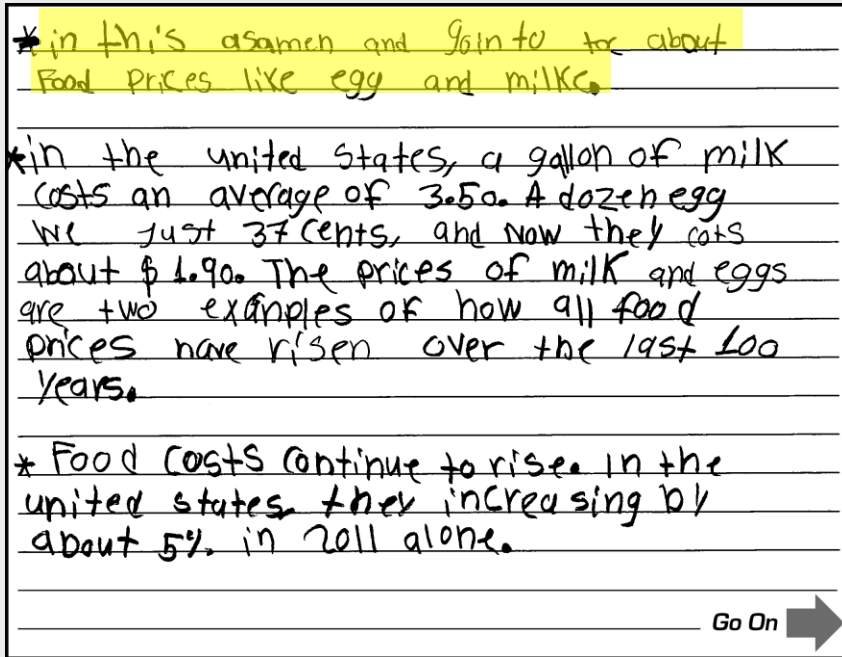 * in this asamen and goin to toc about
Food prices like egg and milke.
* in the united states, a gallon of milk
costs an average of 3.50. A dozen egg
we just 37 cents, and now they cots
about $ 1.90. The prices of milk and eggs
are two examples of how all food
prices have risen over the last 100
years.
* Food costs continue to rise. in the
united states they increasing by
about 5%. in 2011 alone.
Go On